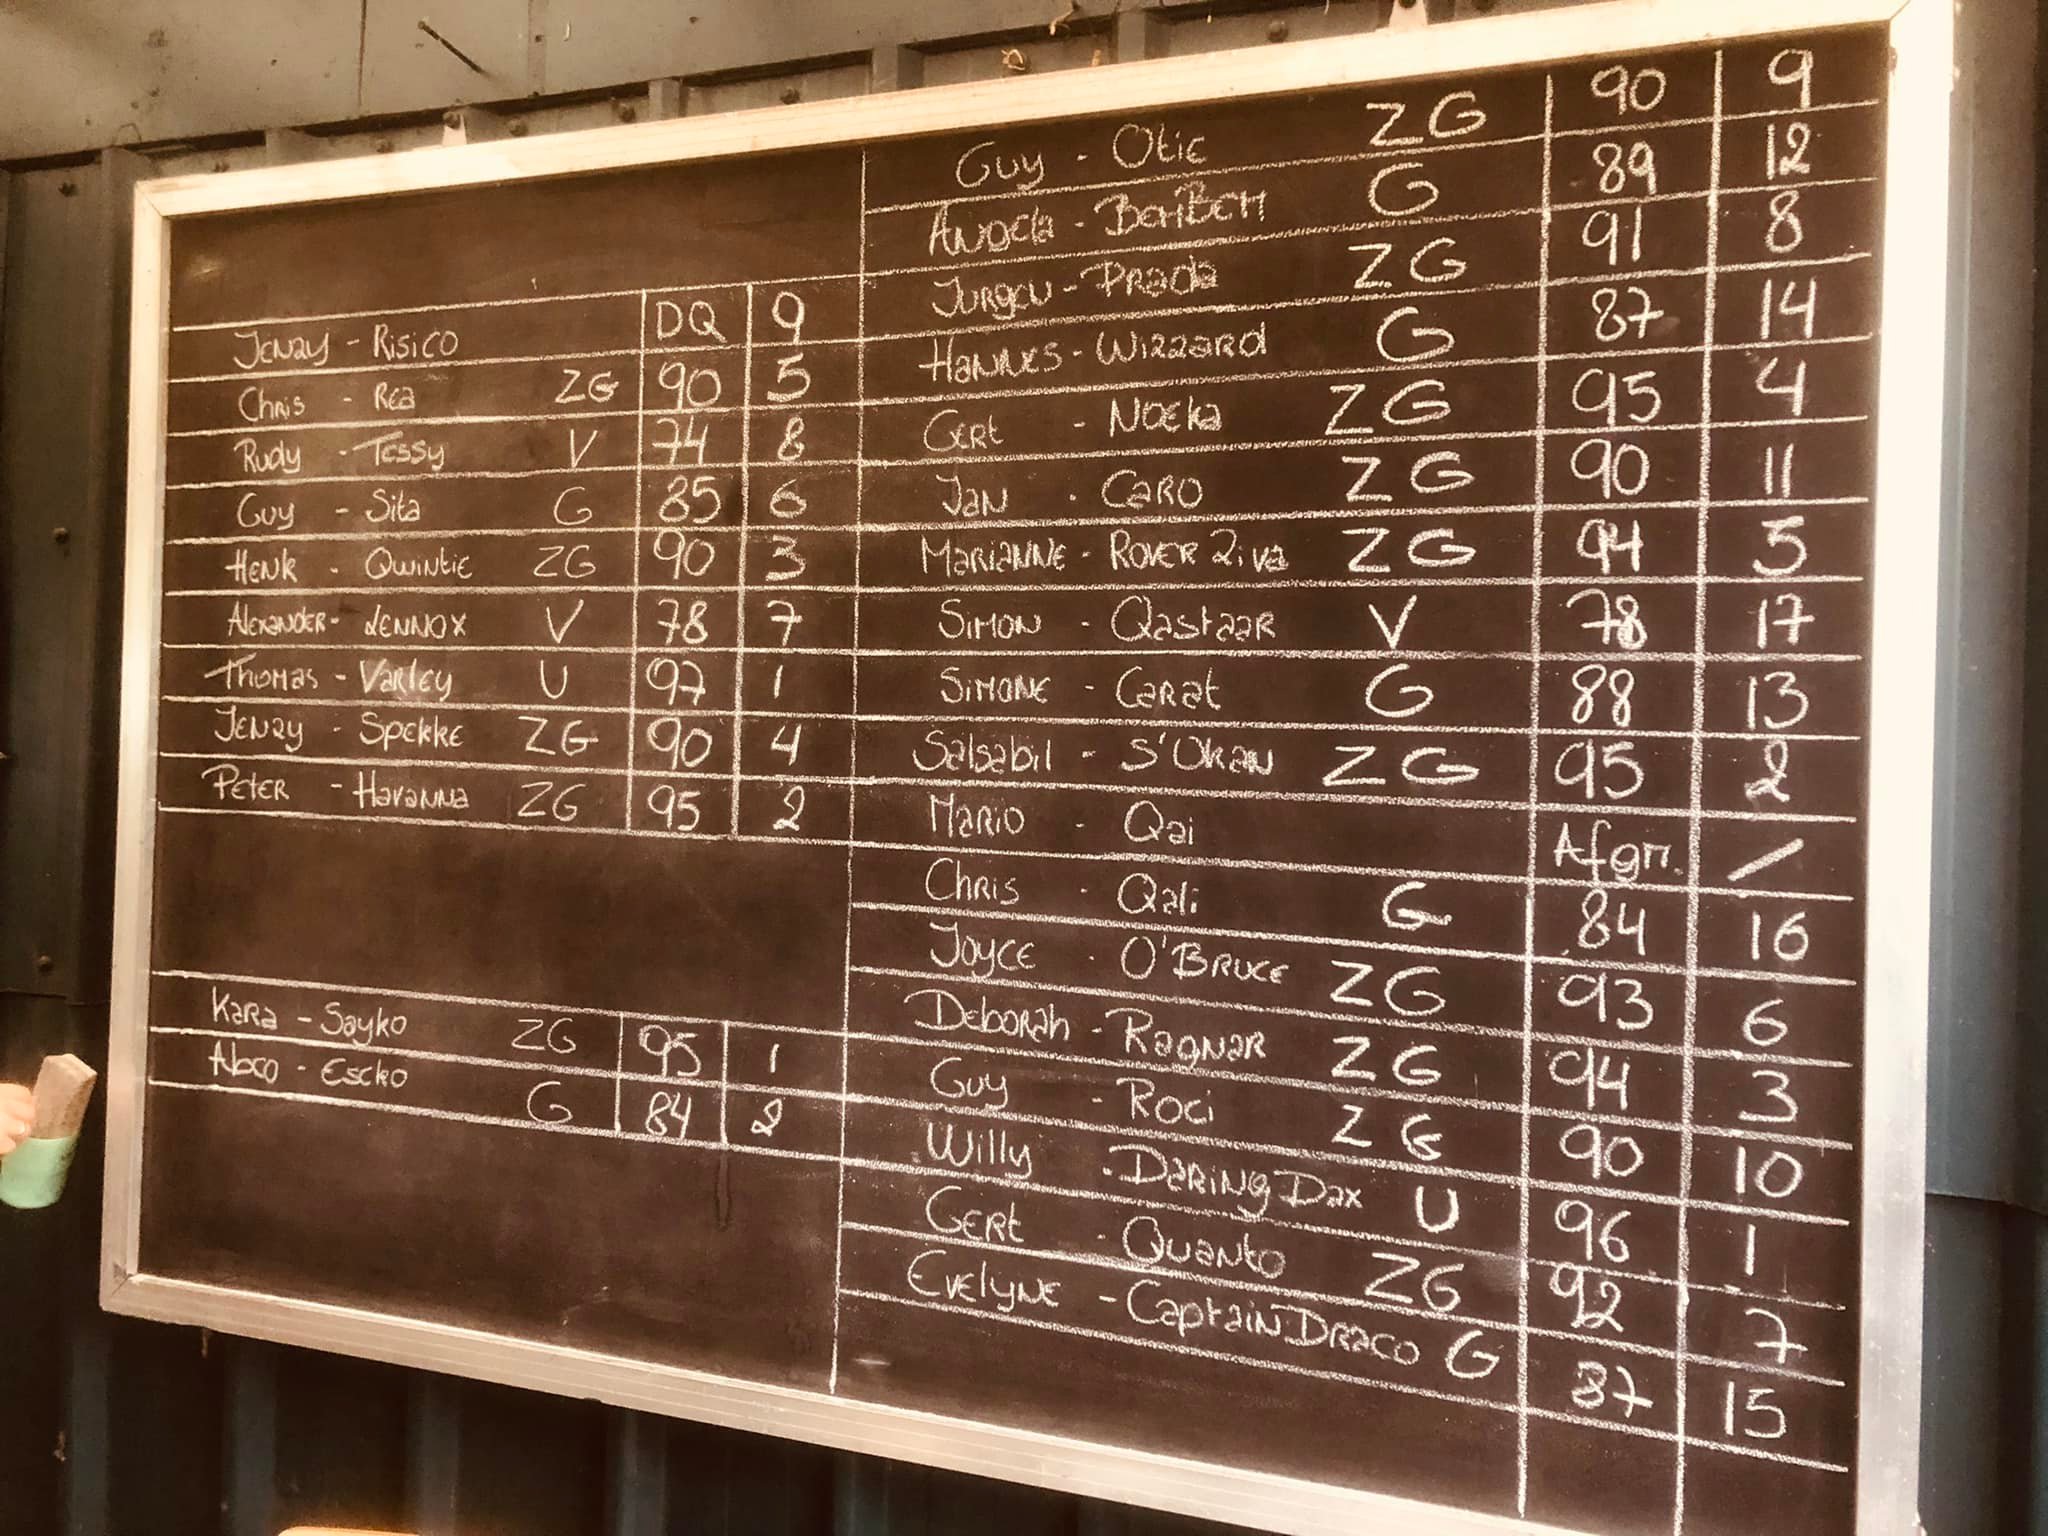 Jenzy - Risico DQ 9
Chris - Rea ZG 90 5
Rudy - Tessy V 74 8
Guy - Sita G 85 6
Henk - Qwintie ZG 90 3
Alexander - Lennox V 78 7
Thomas - Varley U 97 1
Jenzy - Spekke ZG 90 4
Peter - Havanna ZG 95 2
Kara - Sayko ZG 95 1
- Escko G 84 2
Guy - Otie ZG 90 9
Angela - BemBem G 89 12
Jurgen - Prada ZG 91 8
Hannes - Wizzard G 87 14
Gert - Noeka ZG 95 4
Jan - Caro ZG 90 11
Marianne - Rover Ziva ZG 94 5
Simon - Qastaar V 78 17
Simone - Carat G 88 13
Salsabil - S'Ukan ZG 95 2
Mario - Qai Afgm. /
Chris - Qali G 84 16
Joyce - O'Bruce ZG 93 6
Deborah - Ragnar ZG 94 3
Guy - Roci ZG 90 10
Willy - Daring Dax U 96 1
Gert - Quanto ZG 92 7
Evelyne - Captain Draco G 87 15